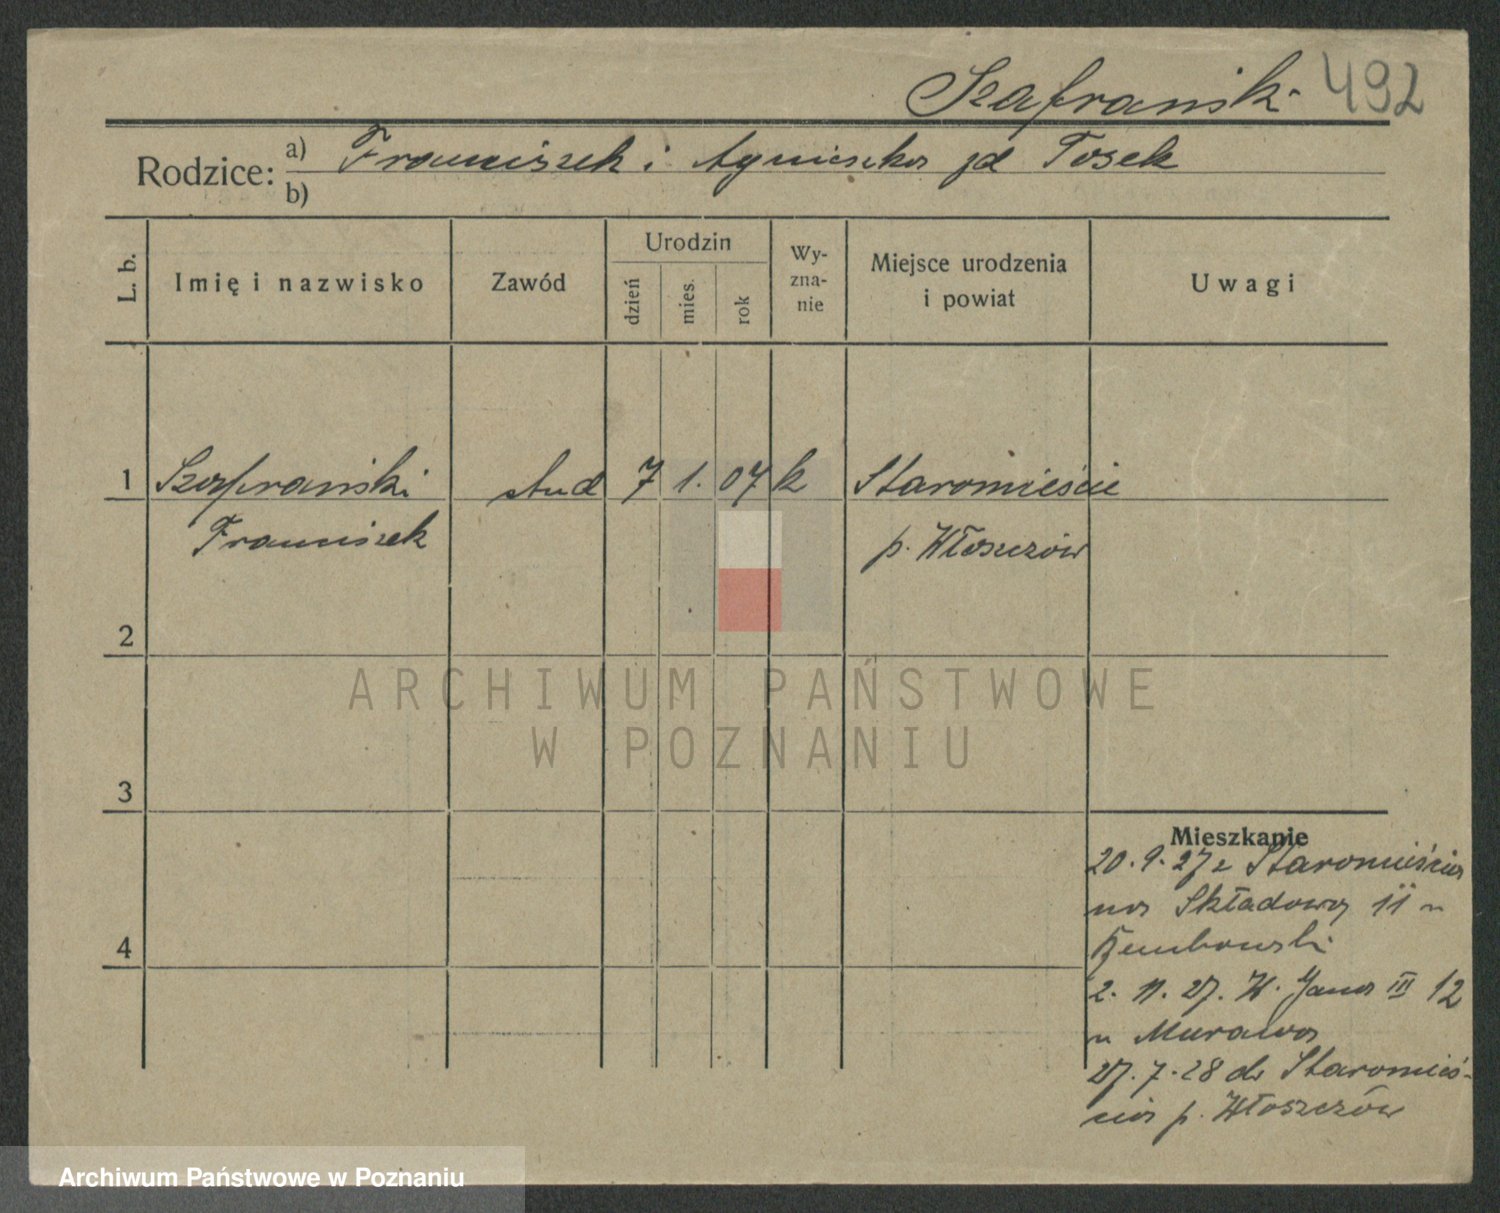 Szafrański 492
Rodzice: a) Franciszek i Agnieszka zd Tosek
b)
L. b.
Imię i nazwisko
Zawód
Urodzin
dzień
mies.
rok
Wy-
zna-
nie
Miejsce urodzenia
i powiat
Uwagi
1 Szafrański stud 7 1. 07 k Staromieście
Franciszek p. Włoszczów
2
ARCHIWUM PAŃSTWOWE
W POZNANIU
3
Mieszkanie
20.9.27 z Staromieścia
na Składową 11
4
2. 11. 27. Jana III 12
u Murawa
27.7.28 do Staromieś-
cia p. Włoszczów
Archiwum Państwowe w Poznaniu